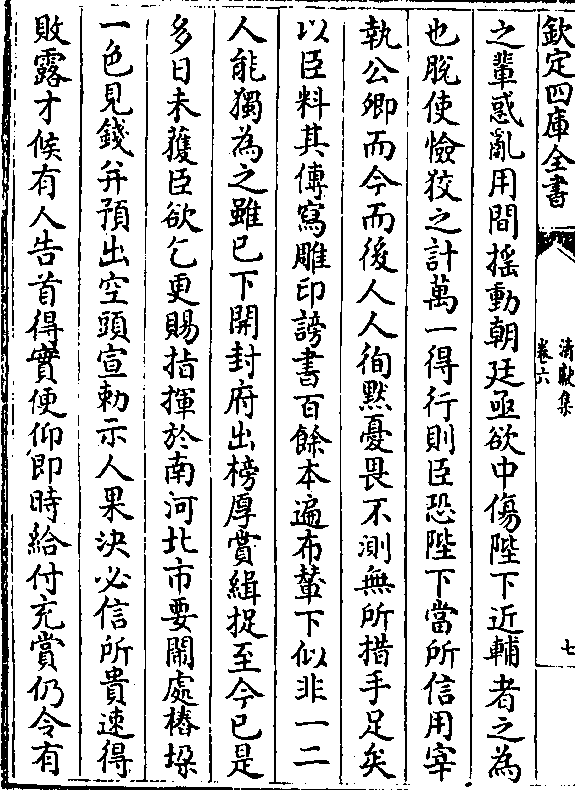 欽定四庫全書
清獻集
卷六
七
之輩惑亂用間揺動朝廷亟欲中傷陛下近輔者之為
也脫使憸狡之計萬一得行則臣恐陛下當所信用宰
執公卿而今而後人人徇黙憂畏不測無所措手足矣
以臣料其傳寫雕印謗書百餘本遍布輦下似非一二
人能獨為之雖已下開封府出榜厚賞緝捉至今已是
多日未獲臣欲乞更賜指揮於南河北市要鬧處樁垜
一色見錢并預出空頭宣勅示人果決必信所貴速得
敗露才候有人告首得實便仰即時給付充賞仍令有